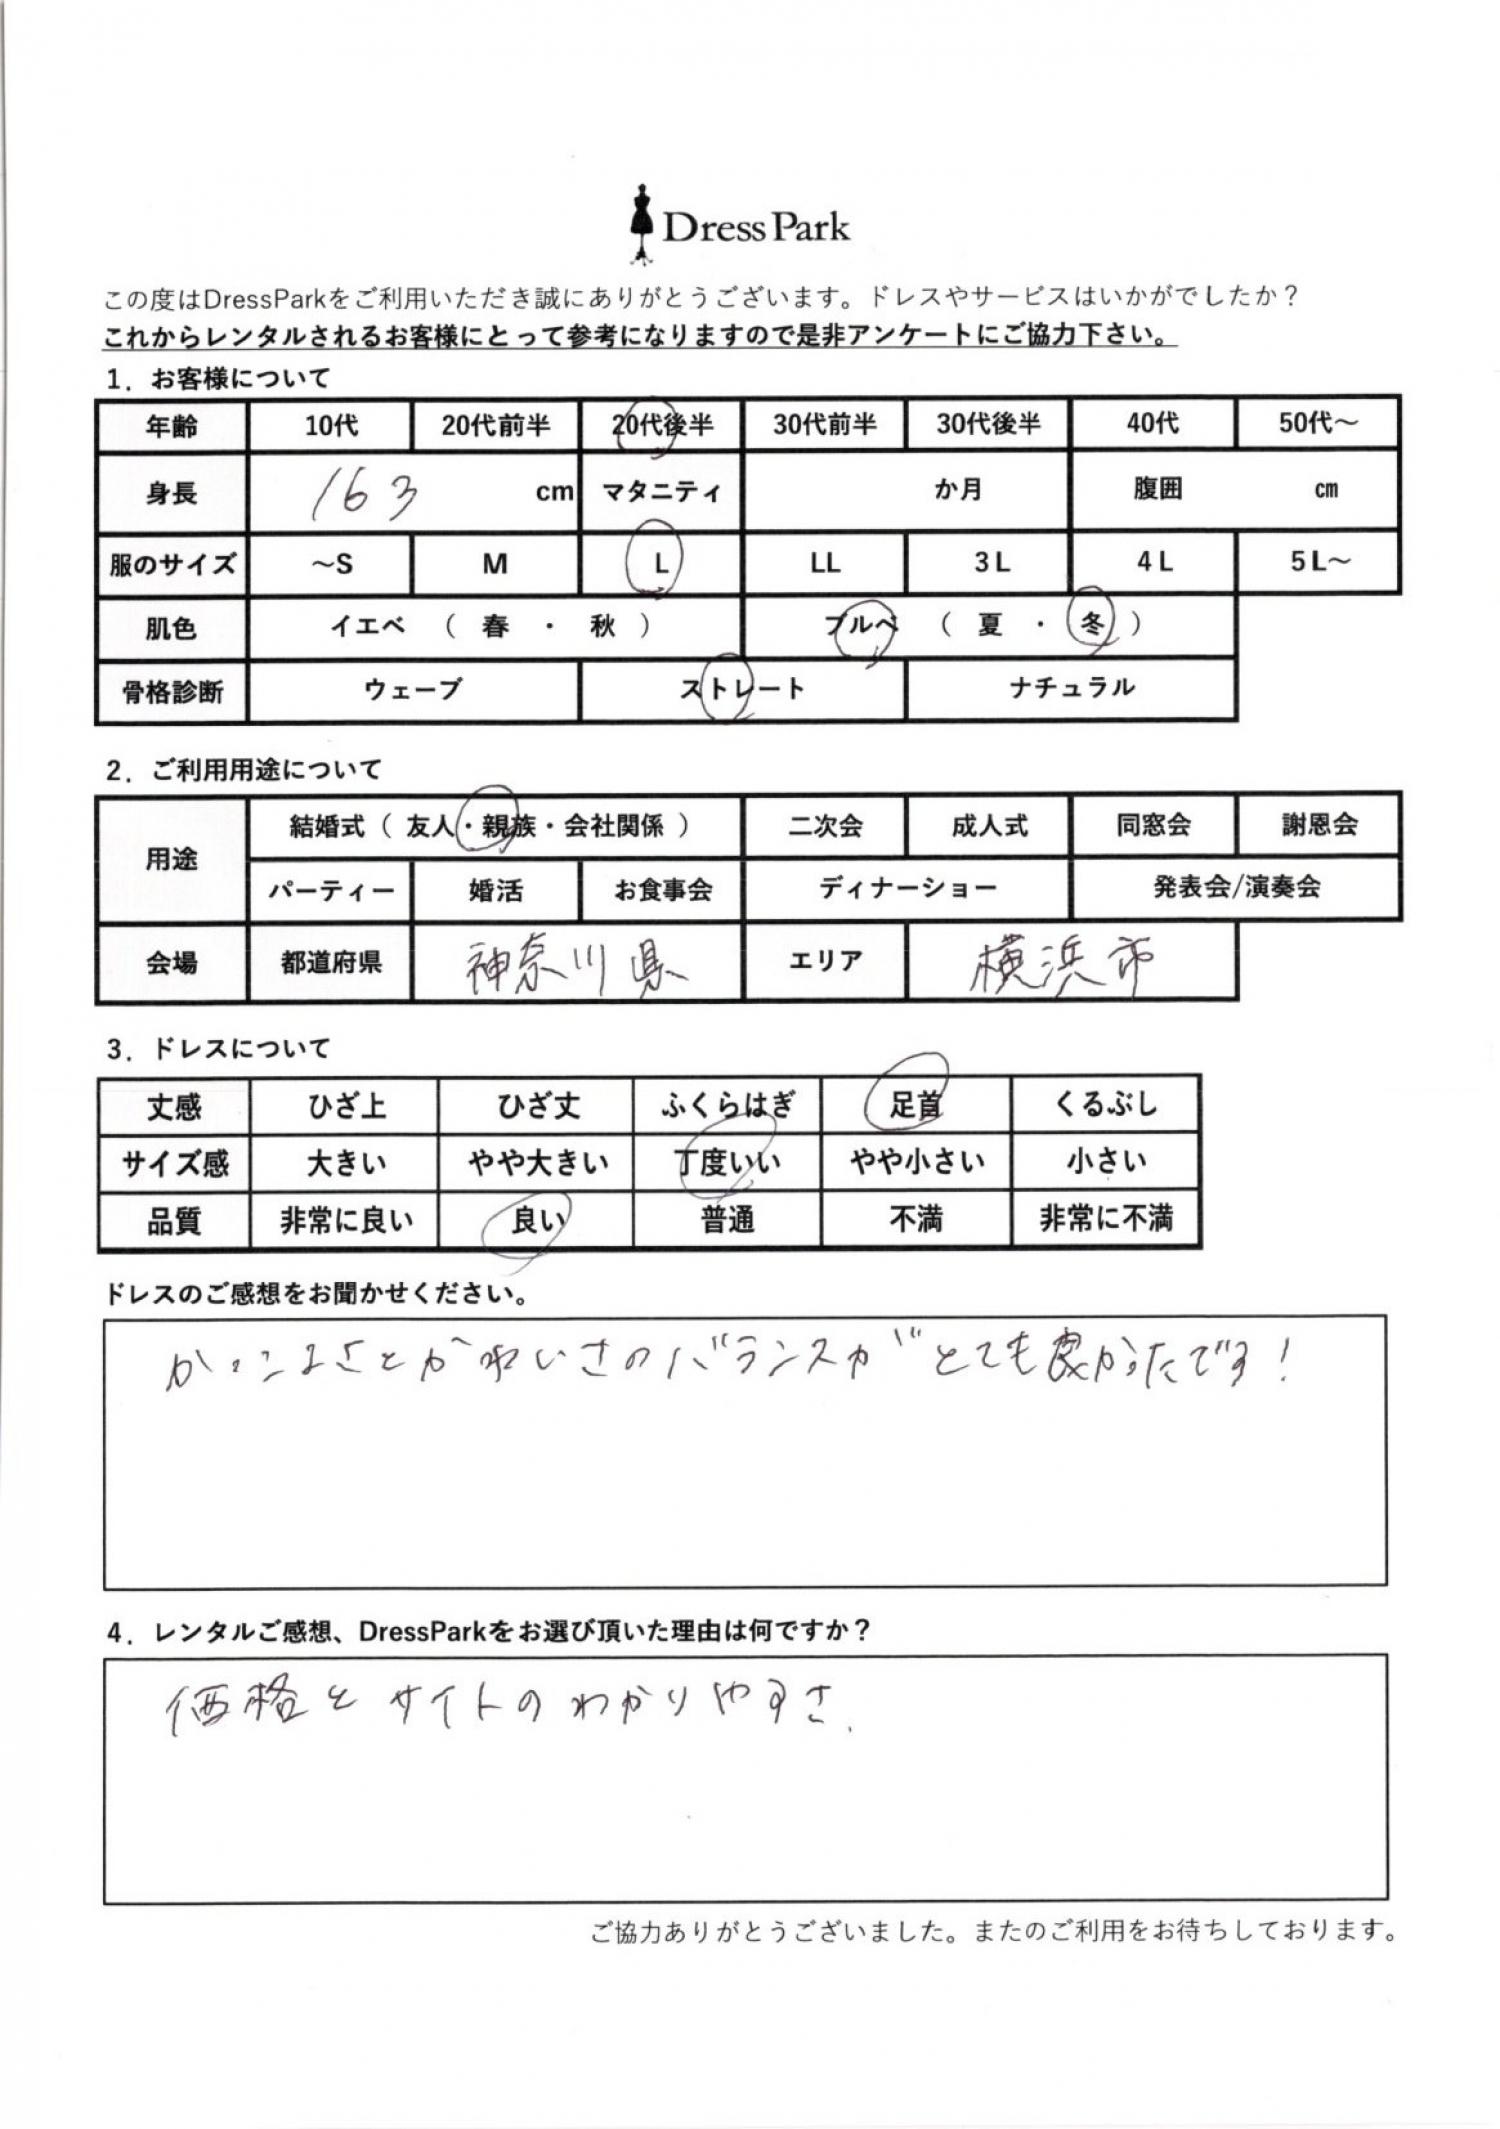 Dress Park
この度はDressParkをご利用いただき誠にありがとうございます。ドレスやサービスはいかがでしたか？
これからレンタルされるお客様にとって参考になりますので是非アンケートにご協力下さい。
1．お客様について
年齢 10代 20代前半 20代後半 30代前半 30代後半 40代 50代～
身長 163 cm マタニティ か月 腹囲 ㎝
服のサイズ ～S M L LL 3L 4L 5L～
肌色 イエベ（ 春 ・ 秋 ） ブルベ（ 夏 ・ 冬 ）
骨格診断 ウェーブ ストレート ナチュラル
2．ご利用用途について
用途 結婚式（ 友人・親族・会社関係 ） 二次会 成人式 同窓会 謝恩会
パーティー 婚活 お食事会 ディナーショー 発表会/演奏会
会場 都道府県 神奈川県 エリア 横浜市
3．ドレスについて
丈感 ひざ上 ひざ丈 ふくらはぎ 足首 くるぶし
サイズ感 大きい やや大きい 丁度いい やや小さい 小さい
品質 非常に良い 良い 普通 不満 非常に不満
ドレスのご感想をお聞かせください。
かっこよさとかわいさのバランスがとても良かったです！
4．レンタルご感想、DressParkをお選び頂いた理由は何ですか？
価格とサイトのわかりやすさ.
ご協力ありがとうございました。またのご利用をお待ちしております。